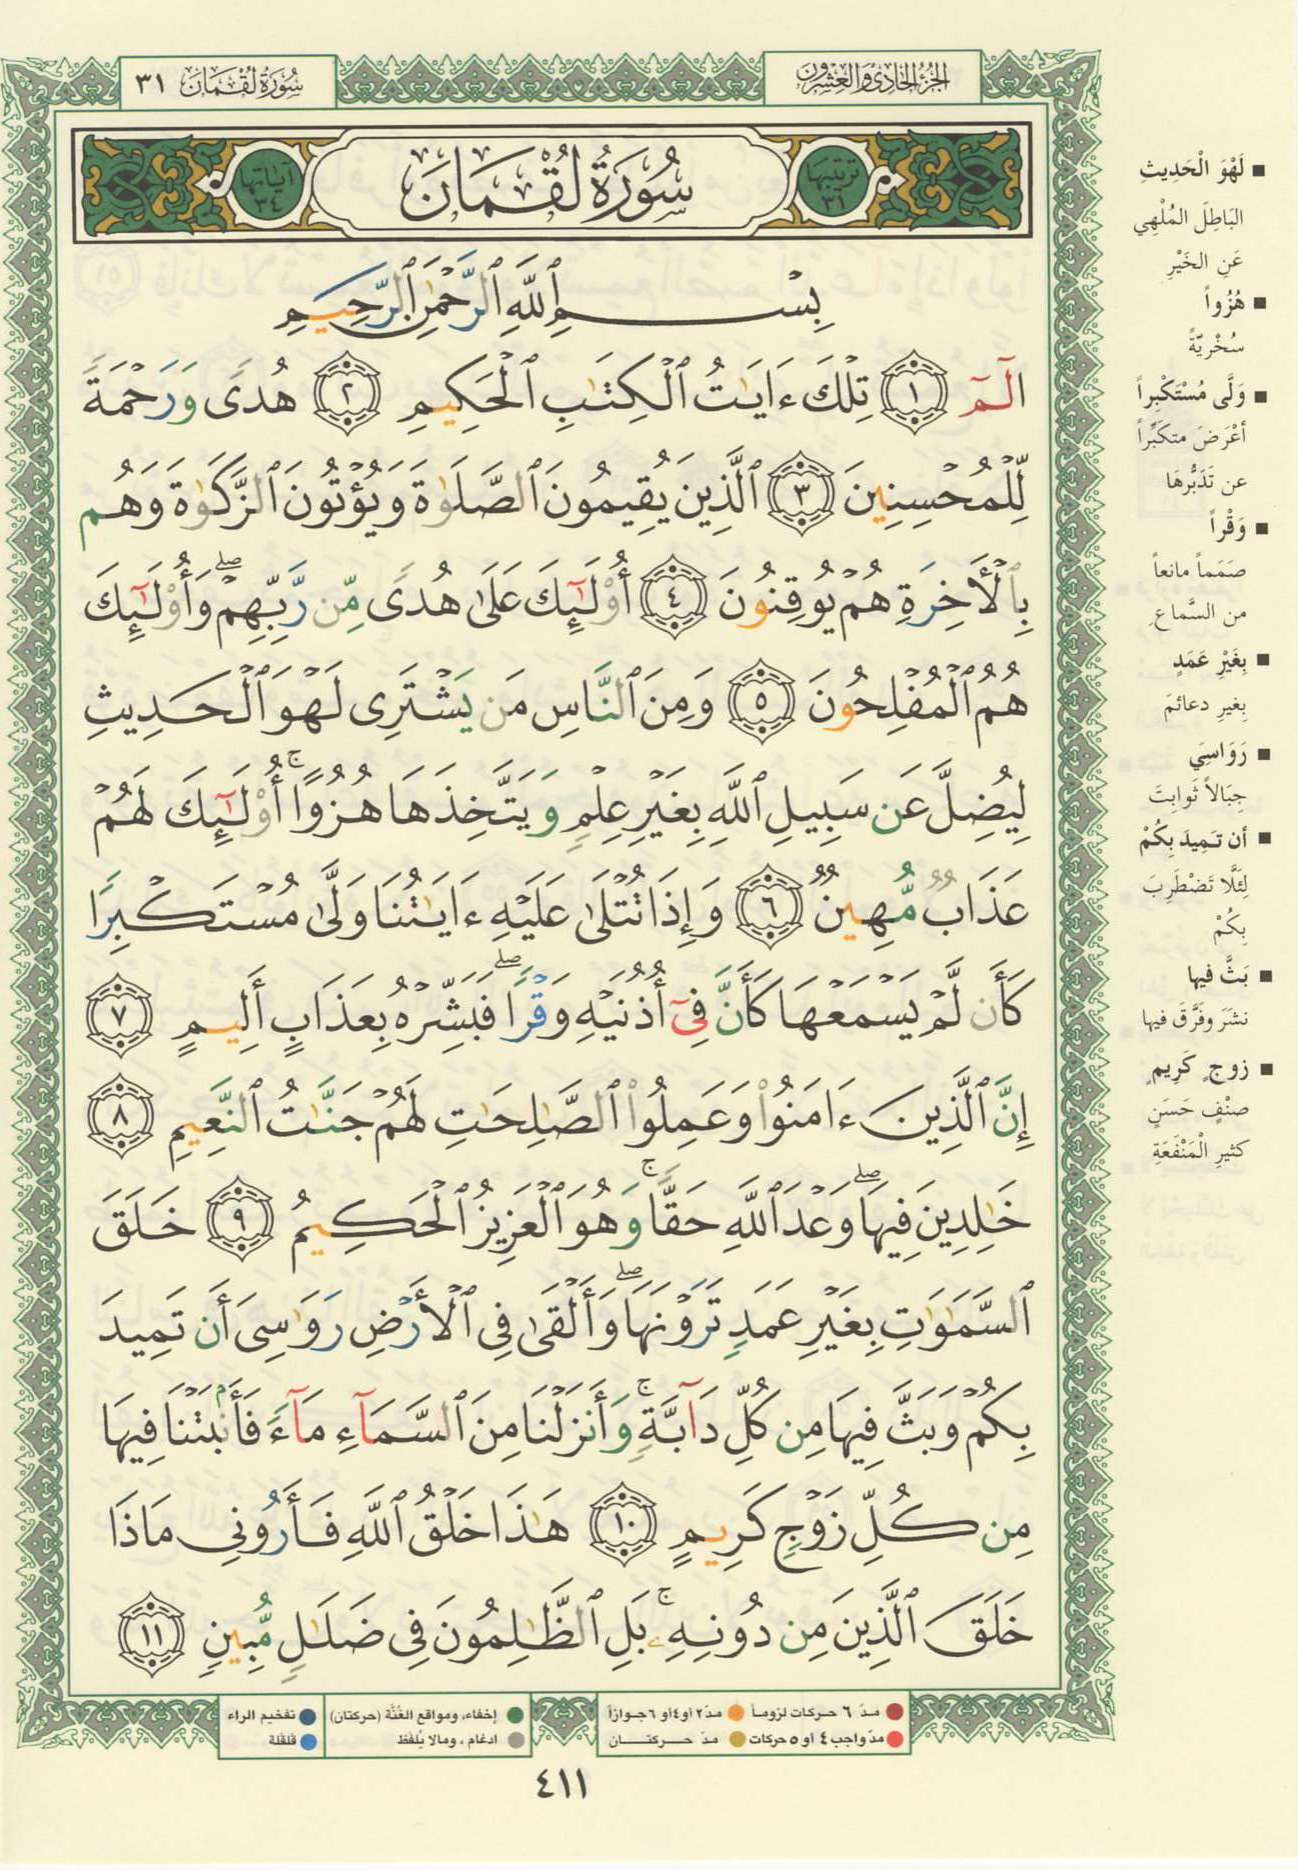 الجزء الحادي والعشرون
سورة لقمان ٣١
ترتيبها ٣١
سُورَةُ لُقْمَان
آياتها ٣٤
بِسْمِ ٱللَّهِ ٱلرَّحْمَٰنِ ٱلرَّحِيمِ
الٓمٓ ١ تِلْكَ ءَايَٰتُ ٱلْكِتَٰبِ ٱلْحَكِيمِ ٢ هُدًى وَرَحْمَةً
لِّلْمُحْسِنِينَ ٣ ٱلَّذِينَ يُقِيمُونَ ٱلصَّلَوٰةَ وَيُؤْتُونَ ٱلزَّكَوٰةَ وَهُم
بِٱلْأَخِرَةِ هُمْ يُوقِنُونَ ٤ أُوْلَٰٓئِكَ عَلَىٰ هُدًى مِّن رَّبِّهِمْ ۖ وَأُوْلَٰٓئِكَ
هُمُ ٱلْمُفْلِحُونَ ٥ وَمِنَ ٱلنَّاسِ مَن يَشْتَرِى لَهْوَ ٱلْحَدِيثِ
لِيُضِلَّ عَن سَبِيلِ ٱللَّهِ بِغَيْرِ عِلْمٍ وَيَتَّخِذَهَا هُزُوًا ۚ أُوْلَٰٓئِكَ لَهُمْ
عَذَابٌ مُّهِينٌ ٦ وَإِذَا تُتْلَىٰ عَلَيْهِ ءَايَٰتُنَا وَلَّىٰ مُسْتَكْبِرًا
كَأَن لَّمْ يَسْمَعْهَا كَأَنَّ فِىٓ أُذُنَيْهِ وَقْرًا ۖ فَبَشِّرْهُ بِعَذَابٍ أَلِيمٍ ٧
إِنَّ ٱلَّذِينَ ءَامَنُوا۟ وَعَمِلُوا۟ ٱلصَّٰلِحَٰتِ لَهُمْ جَنَّٰتُ ٱلنَّعِيمِ ٨
خَٰلِدِينَ فِيهَا ۖ وَعْدَ ٱللَّهِ حَقًّا ۚ وَهُوَ ٱلْعَزِيزُ ٱلْحَكِيمُ ٩ خَلَقَ
ٱلسَّمَٰوَٰتِ بِغَيْرِ عَمَدٍ تَرَوْنَهَا ۖ وَأَلْقَىٰ فِى ٱلْأَرْضِ رَوَٰسِىَ أَن تَمِيدَ
بِكُمْ وَبَثَّ فِيهَا مِن كُلِّ دَآبَّةٍ ۚ وَأَنزَلْنَا مِنَ ٱلسَّمَآءِ مَآءً فَأَنۢبَتْنَا فِيهَا
مِن كُلِّ زَوْجٍ كَرِيمٍ ١٠ هَٰذَا خَلْقُ ٱللَّهِ فَأَرُونِى مَاذَا
خَلَقَ ٱلَّذِينَ مِن دُونِهِۦ ۚ بَلِ ٱلظَّٰلِمُونَ فِى ضَلَٰلٍ مُّبِينٍ ١١
■ لَهْوَ الْحَدِيثِ
البَاطِلَ المُلْهِي
عَنِ الخَيْرِ
■ هُزُواً
سُخْرِيّةً
■ وَلَّى مُسْتَكْبِراً
أعْرَضَ متكَبِّراً
عن تَدَبُّرِهَا
■ وَقْراً
صَمَماً مانعاً
من السَّماع
■ بِغَيْرِ عَمَدٍ
بِغيرِ دعائمَ
■ رَوَاسِيَ
جِبَالاً ثَوابِتَ
■ أن تَمِيدَ بِكُمْ
لِئَلَّا تَضْطَرِبَ
بِكُمْ
■ بَثَّ فيها
نشَرَ وفَرَّقَ فيها
■ زوجٍ كَرِيمٍ
صنْفٍ حَسَنٍ
كثيرِ الْمَنْفَعَةِ
مدّ ٦ حركات لزوماً
مدّ ٢ أو ٤ أو ٦ جوازاً
إخفاء، ومواقع الغُنَّة (حركتان)
تفخيم الراء
مدّ واجب ٤ أو ٥ حركات
مدّ حركتان
ادغام ، ومالا يُلفَظ
قلقلة
٤١١